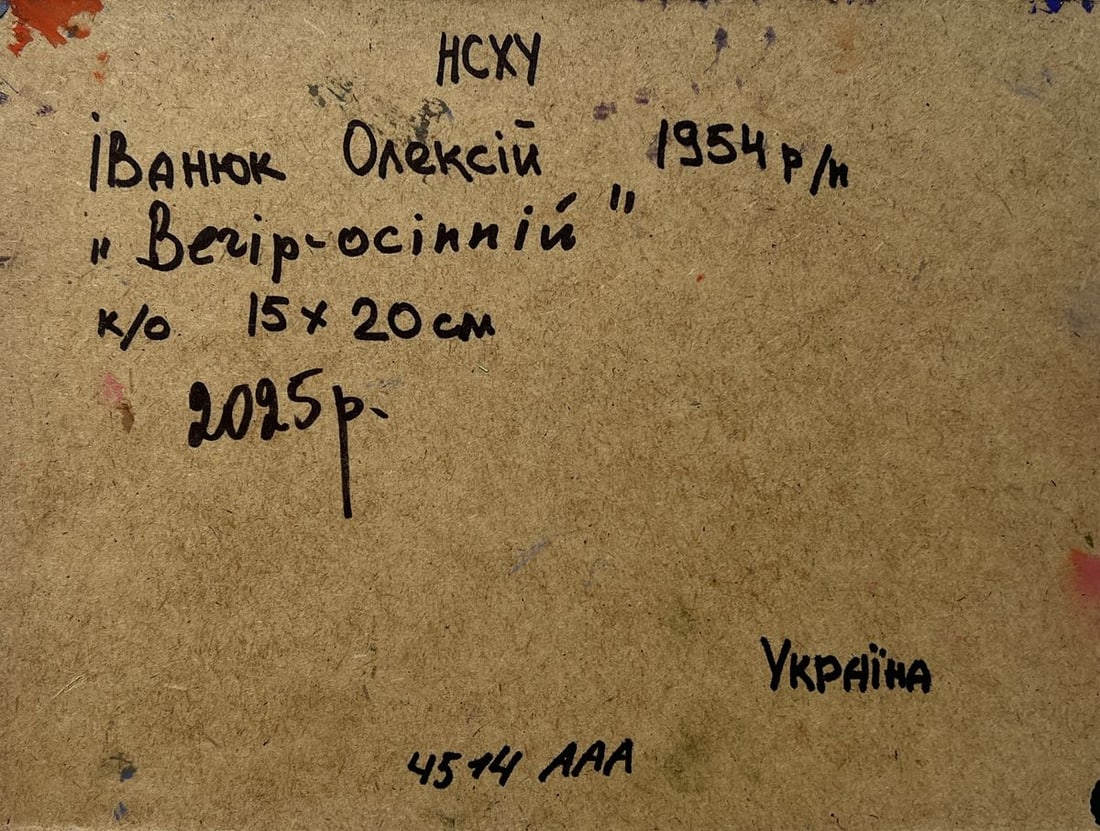 НСХУ
Іванюк Олексій 1954 р/н
„Вечір-осінній"
к/о. 15х20см
2025р.
Україна
4514 ААА